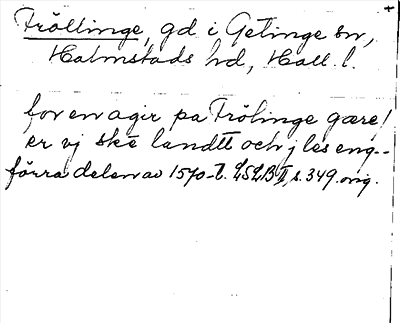 Fröllinge, gd i Getinge sn,
Halmstads hd, Hall. l.
for en agir pa Frölinge gære!
er vj ske landtt och j les eng--
förra delen av 1570-t. LSLB II, s. 349. orig.